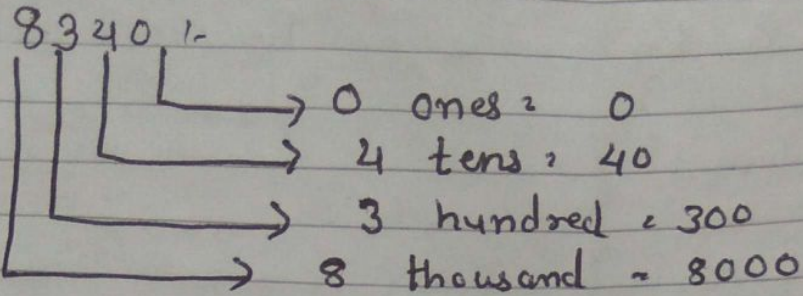 8340 :-
0 ones = 0
4 tens = 40
3 hundred = 300
8 thousand = 8000